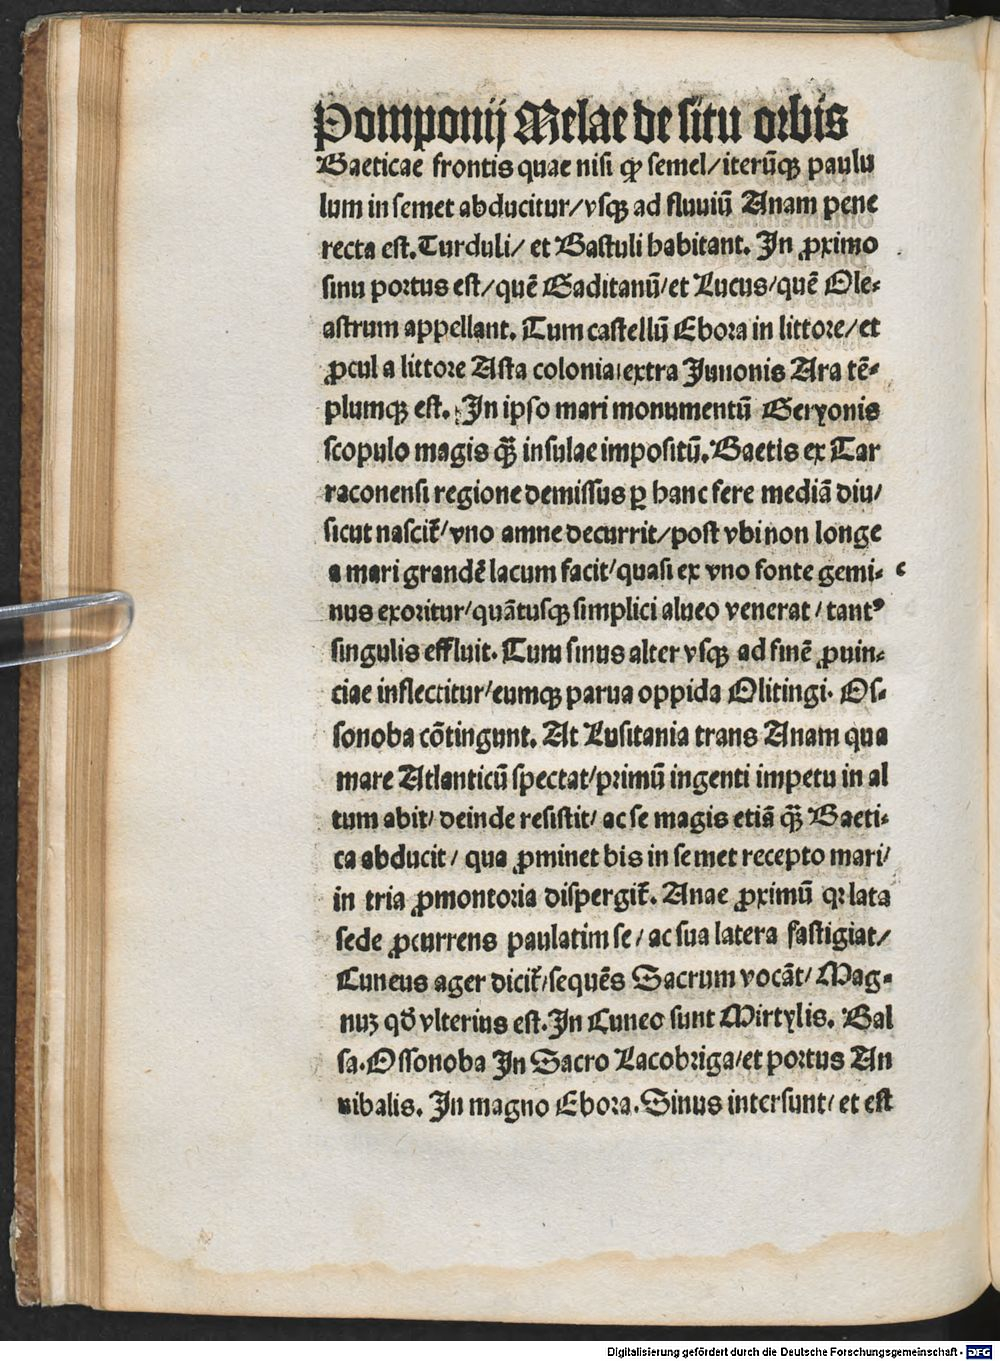 Pomponij Melae de situ orbis
Baeticae frontis quae nisi ꝙ semel/iterūqꝫ paulu
lum in semet abducitur/vsqꝫ ad fluuiū Anam pene
recta est. Turduli/ et Bastuli habitant. In ꝓximo
sinu portus est/quē Gaditanū/et Lucus/quē Ole⸗
astrum appellant. Tum castellū Ebora in littore/et
ꝓcul a littore Asta colonia/extra Junonis Ara tē⸗
plumqꝫ est. In ipso mari monumentū Geryonis
scopulo magis qꝫ̄ insulae impositū. Baetis ex Tar
raconensi regione demissus ꝑ hanc fere mediā diu/
sicut nascit᷑/vno amne decurrit/post vbi non longe
a mari grandē lacum facit/quasi ex vno fonte gemi⸗
nus exoritur/quātusqꝫ simplici alueo venerat/tantꝰ
singulis effluit. Tum sinus alter vsqꝫ ad finē ꝓuin⸗
ciae inflectitur/eumqꝫ parua oppida Olitingi. Os⸗
sonoba cōtingunt. At Lusitania trans Anam qua
mare Atlanticū spectat/primū ingenti impetu in al
tum abit/ deinde resistit/ ac se magis etiā qꝫ̄ Baeti⸗
ca abducit/ qua ꝓminet bis in semet recepto mari/
in tria ꝓmontoria dispergit᷑. Anae ꝓximū qꝛ lata
sede ꝓcurrens paulatim se/ ac sua latera fastigiat/
Cuneus ager dicit᷑/sequēs Sacrum vocāt/ Mag⸗
nuꝫ qđ vlterius est. In Cuneo sunt Mirtylis. Bal
sa. Ossonoba In Sacro Lacobriga/et portus An
nibalis. In magno Ebora. Sinus intersunt/ et est
Digitalisierung gefördert durch die Deutsche Forschungsgemeinschaft - DFG